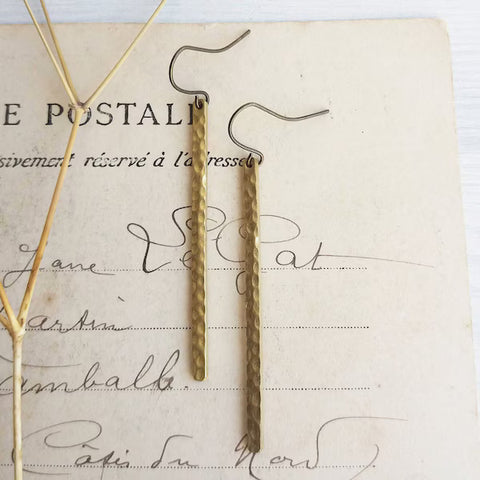 E POSTALE
sivement réservé à l'adresse
Jane Le Gat
Martin
Lamballe.
Côtes du Nord